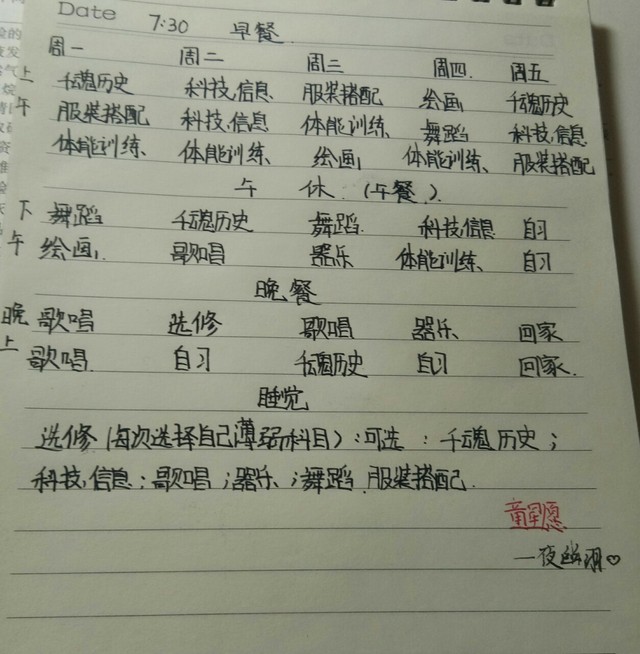 Date 7:30 早餐
周一 周二 周三 周四 周五
上午
千魂历史 科技信息 服装搭配 绘画 千魂历史
服装搭配 科技信息 体能训练 舞蹈 科技信息
体能训练 体能训练 绘画 体能训练 服装搭配
午休 (午餐)
下午
舞蹈 千魂历史 舞蹈 科技信息 自习
绘画 歌唱 器乐 体能训练 自习
晚餐
晚上
歌唱 选修 歌唱 器乐 回家
歌唱 自习 千魂历史 自习 回家
睡觉
选修(每次选择自己薄弱科目):可选:千魂历史;
科技信息;歌唱;器乐;舞蹈 服装搭配
一夜